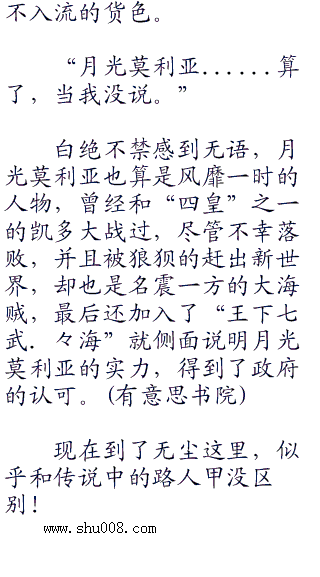 不入流的货色。
“月光莫利亚......算
了，当我没说。”
白绝不禁感到无语，月
光莫利亚也算是风靡一时的
人物，曾经和“四皇”之一
的凯多大战过，尽管不幸落
败，并且被狼狈的赶出新世
界，却也是名震一方的大海
贼，最后还加入了“王下七
武．々海”就侧面说明月光
莫利亚的实力，得到了政府
的认可。(有意思书院)
现在到了无尘这里，似
乎和传说中的路人甲没区
别！
www.shu008.com